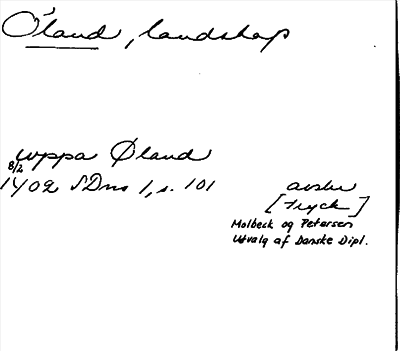 Öland, landskap
uppa Øland
8/2
1402 SDns 1, s. 101
avskr
[tryck]
Molbeck og Petersen
Utvalg af Danske Dipl.